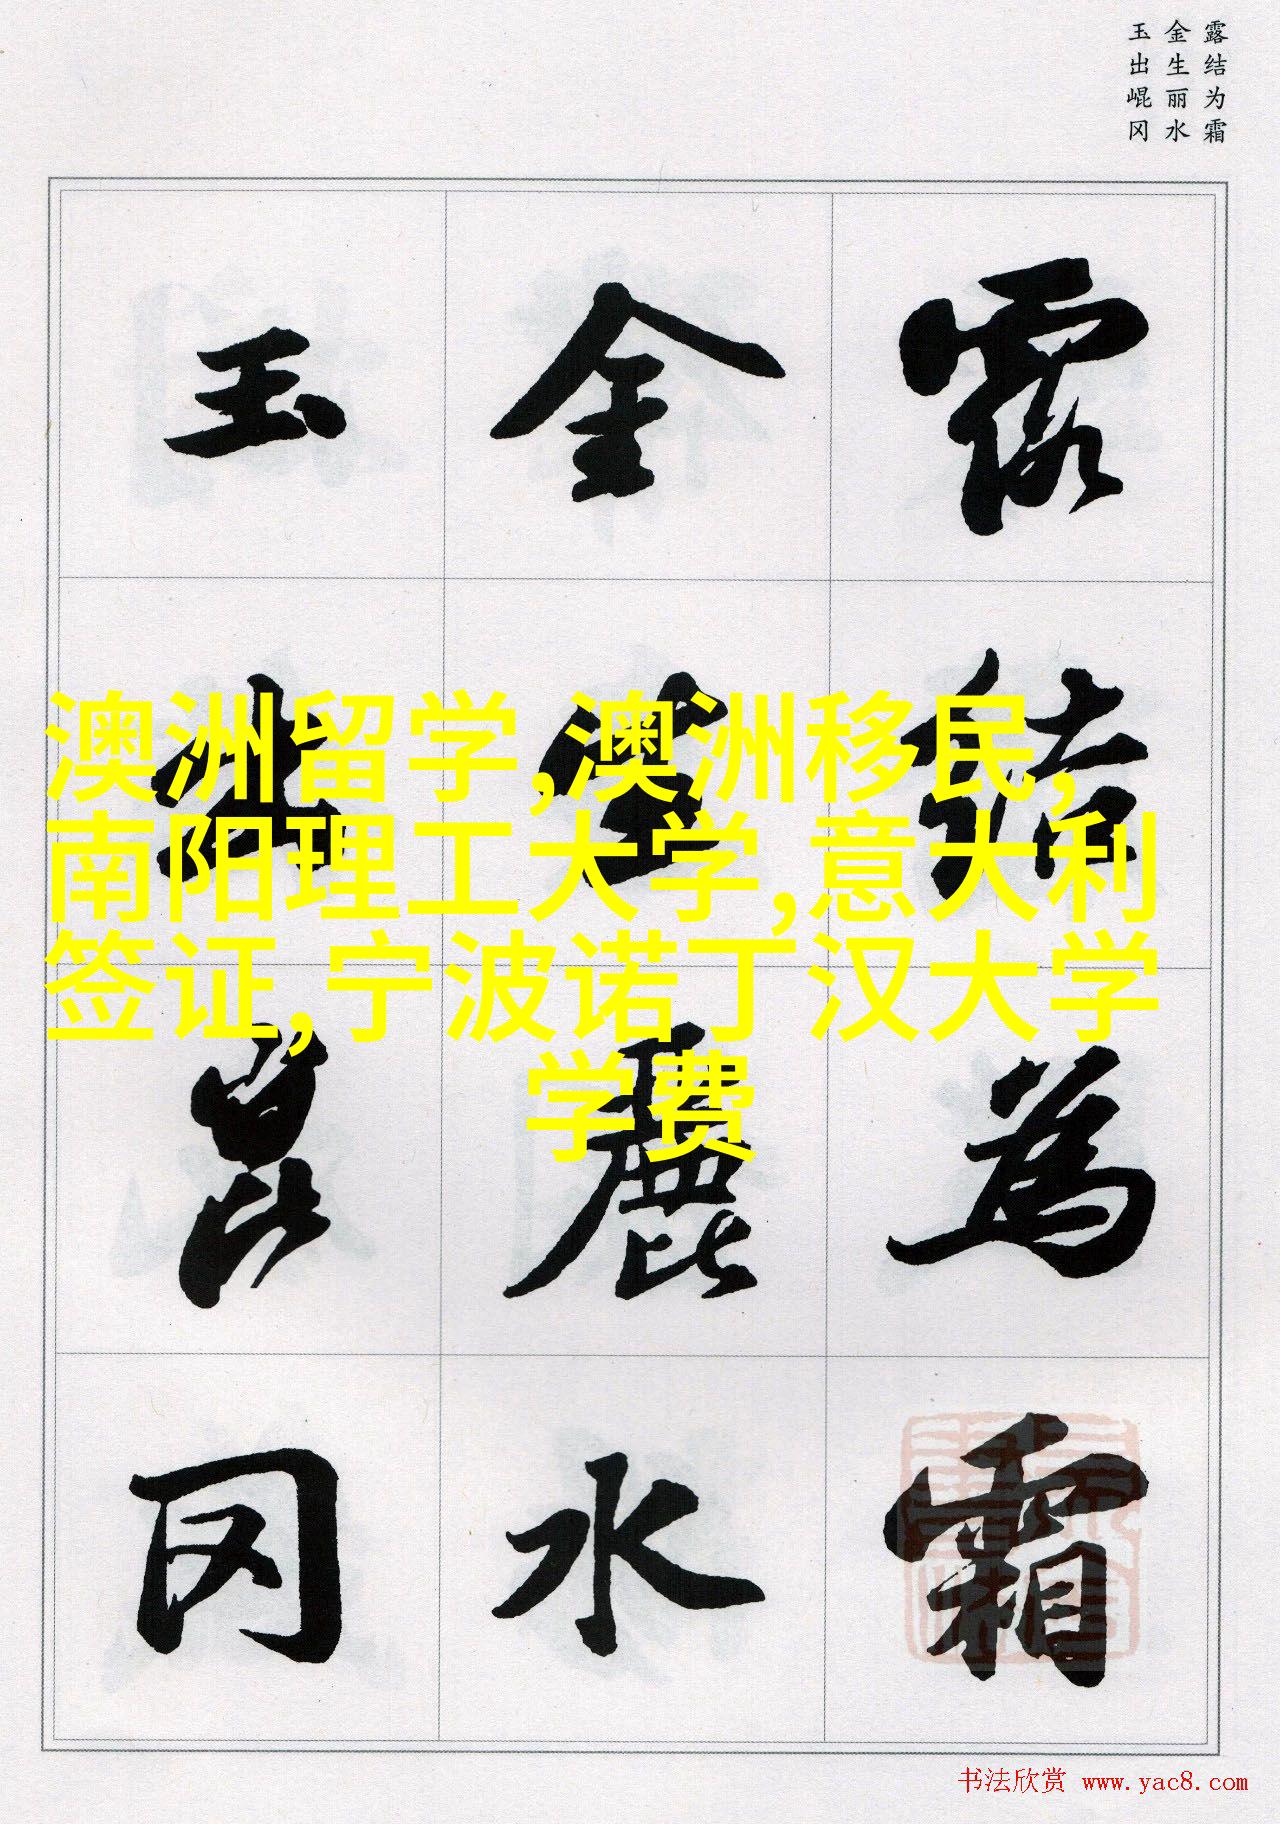 露结为霜
金生丽水
玉出崐冈
露結為霜
金生麗水
玉出崑冈
澳洲留学,澳洲移民,
南阳理工大学,意大利
签证,宁波诺丁汉大学
学费
书法欣赏 www.yac8.com